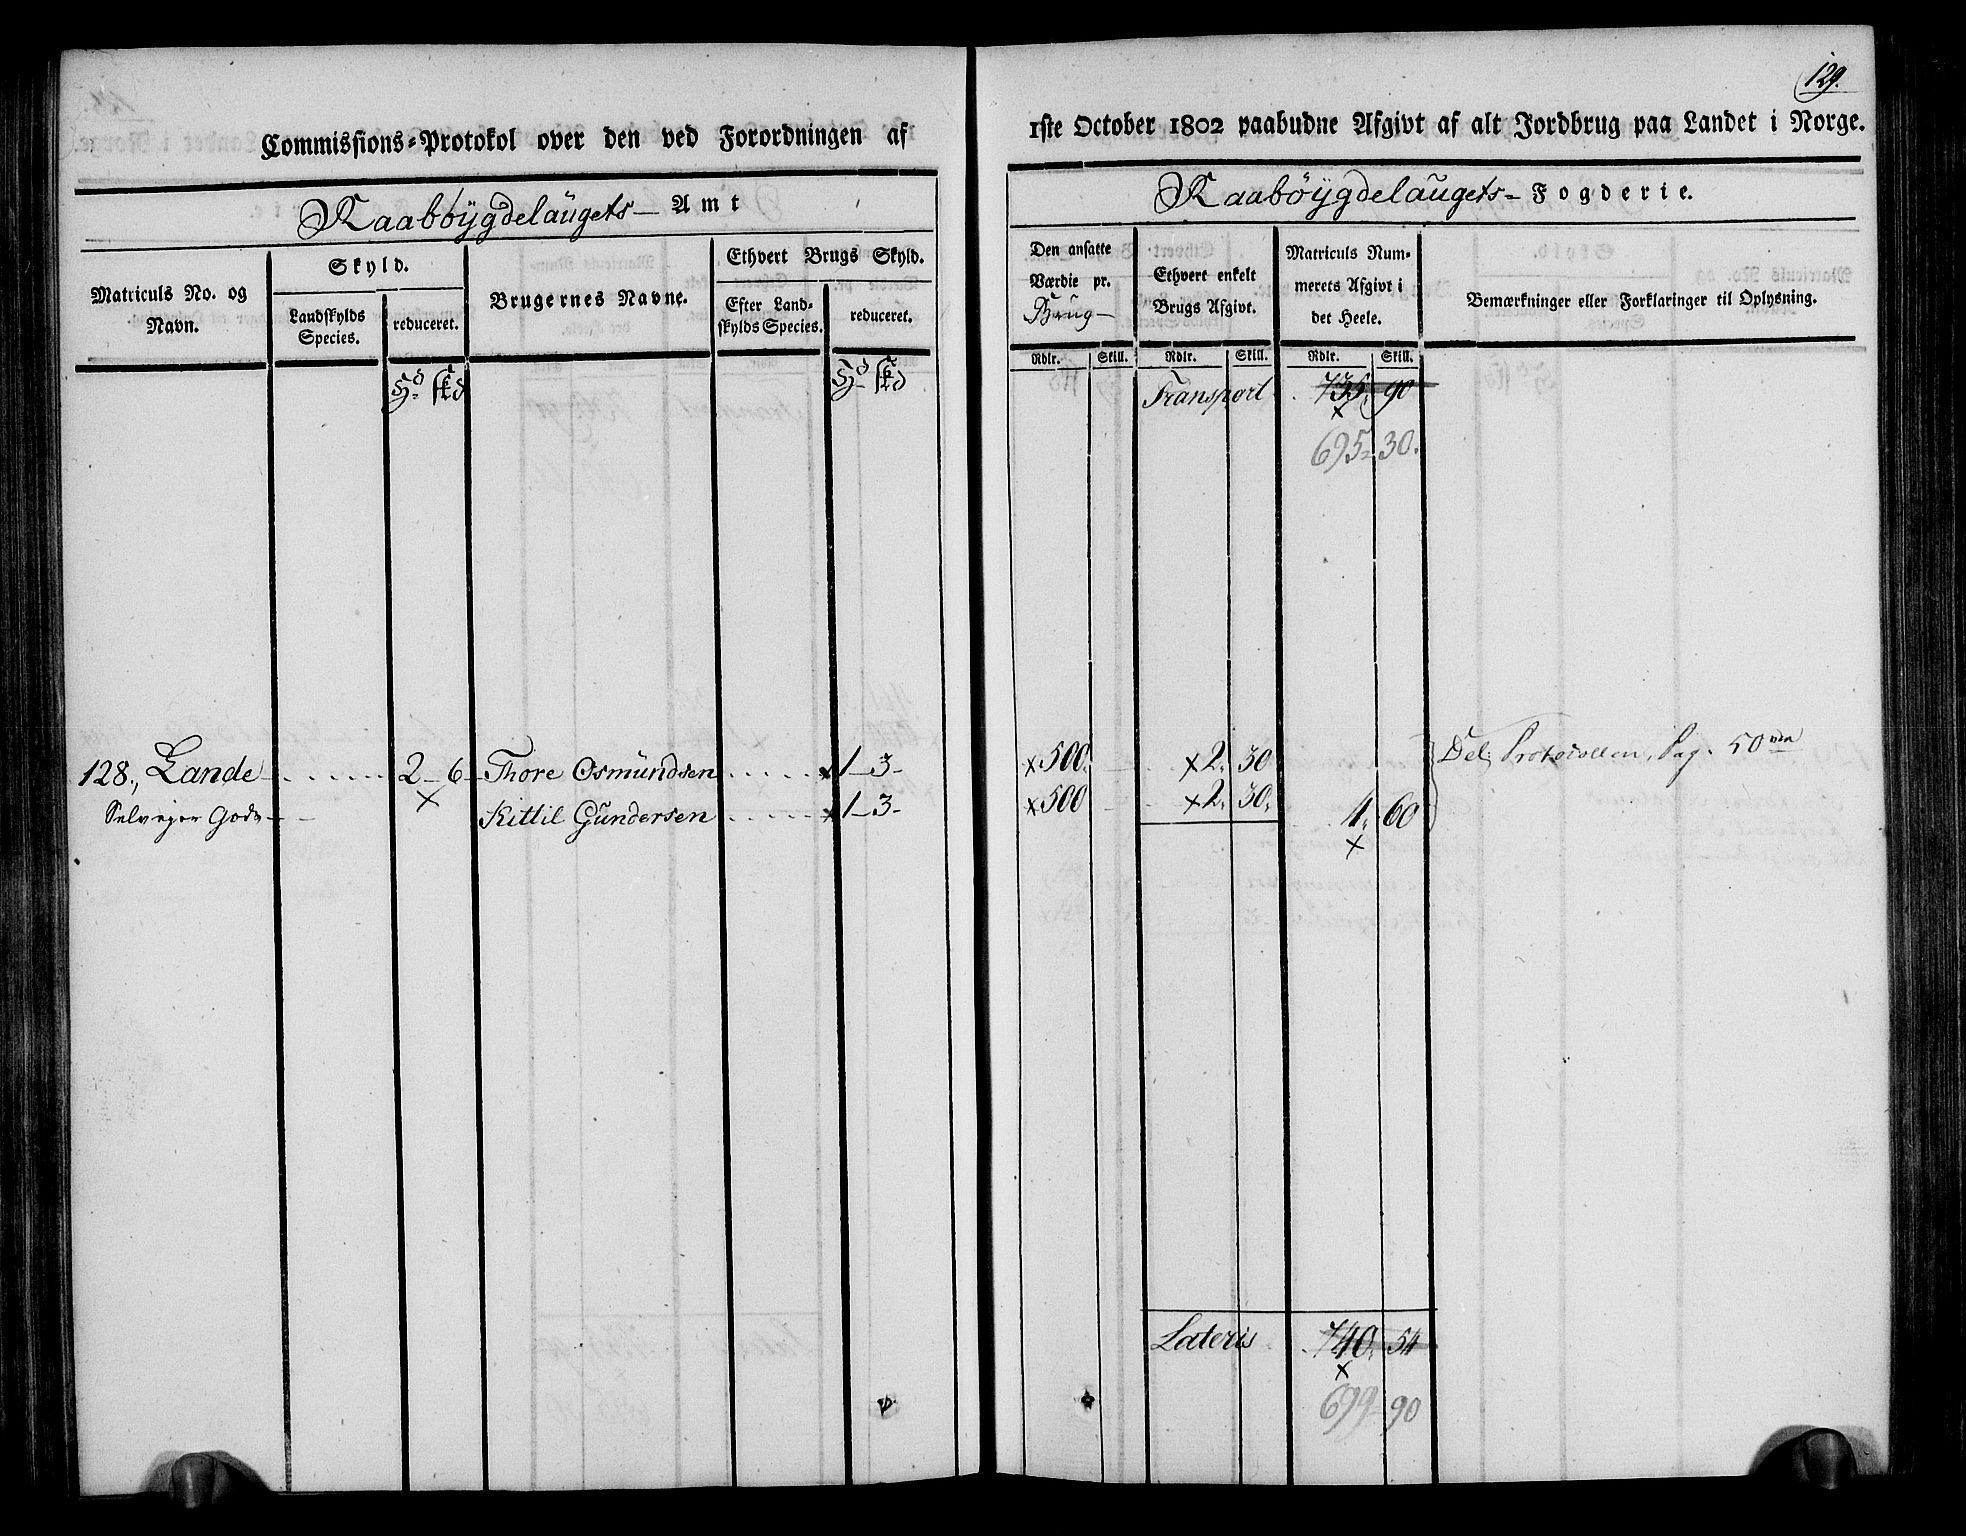 129.
Commissions-Protokol over den ved Forordningen af
1ste October 1802 paabudne Afgivt af alt Jordbrug paa Landet i Norge.
Raabøÿgdelaugets Amt
Raabøÿgdelaugets- Fogderie.
Matriculs No. og Navn.
Skyld.
Landskylds Species.
reduceret.
Brugernes Navne.
Ethvert Brugs Skyld.
Efter Landskylds Species.
reduceret.
Den ansatte Værdie pr. Brug
Ethvert enkelt Brugs Afgivt.
Matriculs Nummerets Afgivt i det Heele.
Bemærkninger eller Forklaringer til Oplysning.
Rdlr. Skill. Rdlr. Skill. Rdlr. Skill.
Transport 735, 90
695 30.
128., Lande 2 - 6 - Thore Osmundsen x 1 - 3 - x 500. x 2, 30 Del: Protocollen, Pag. 50
Selveier Gods x Kittil Gundersen x 1 - 3 - x 500 x 2, 30, 4, 60
x
Lateris 740, 54
x
699 90